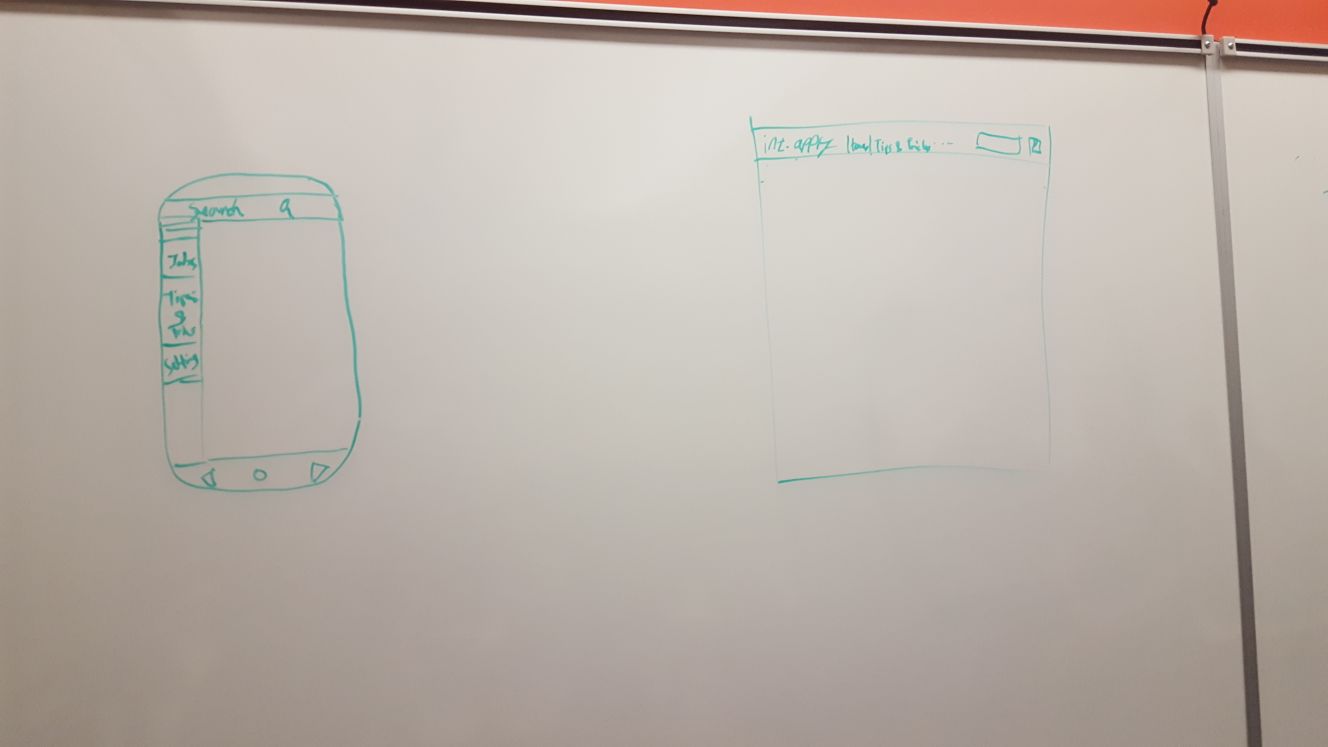 Search
Jobs
Tips
&
Setting
int.apply Home Tips & Tricks ...